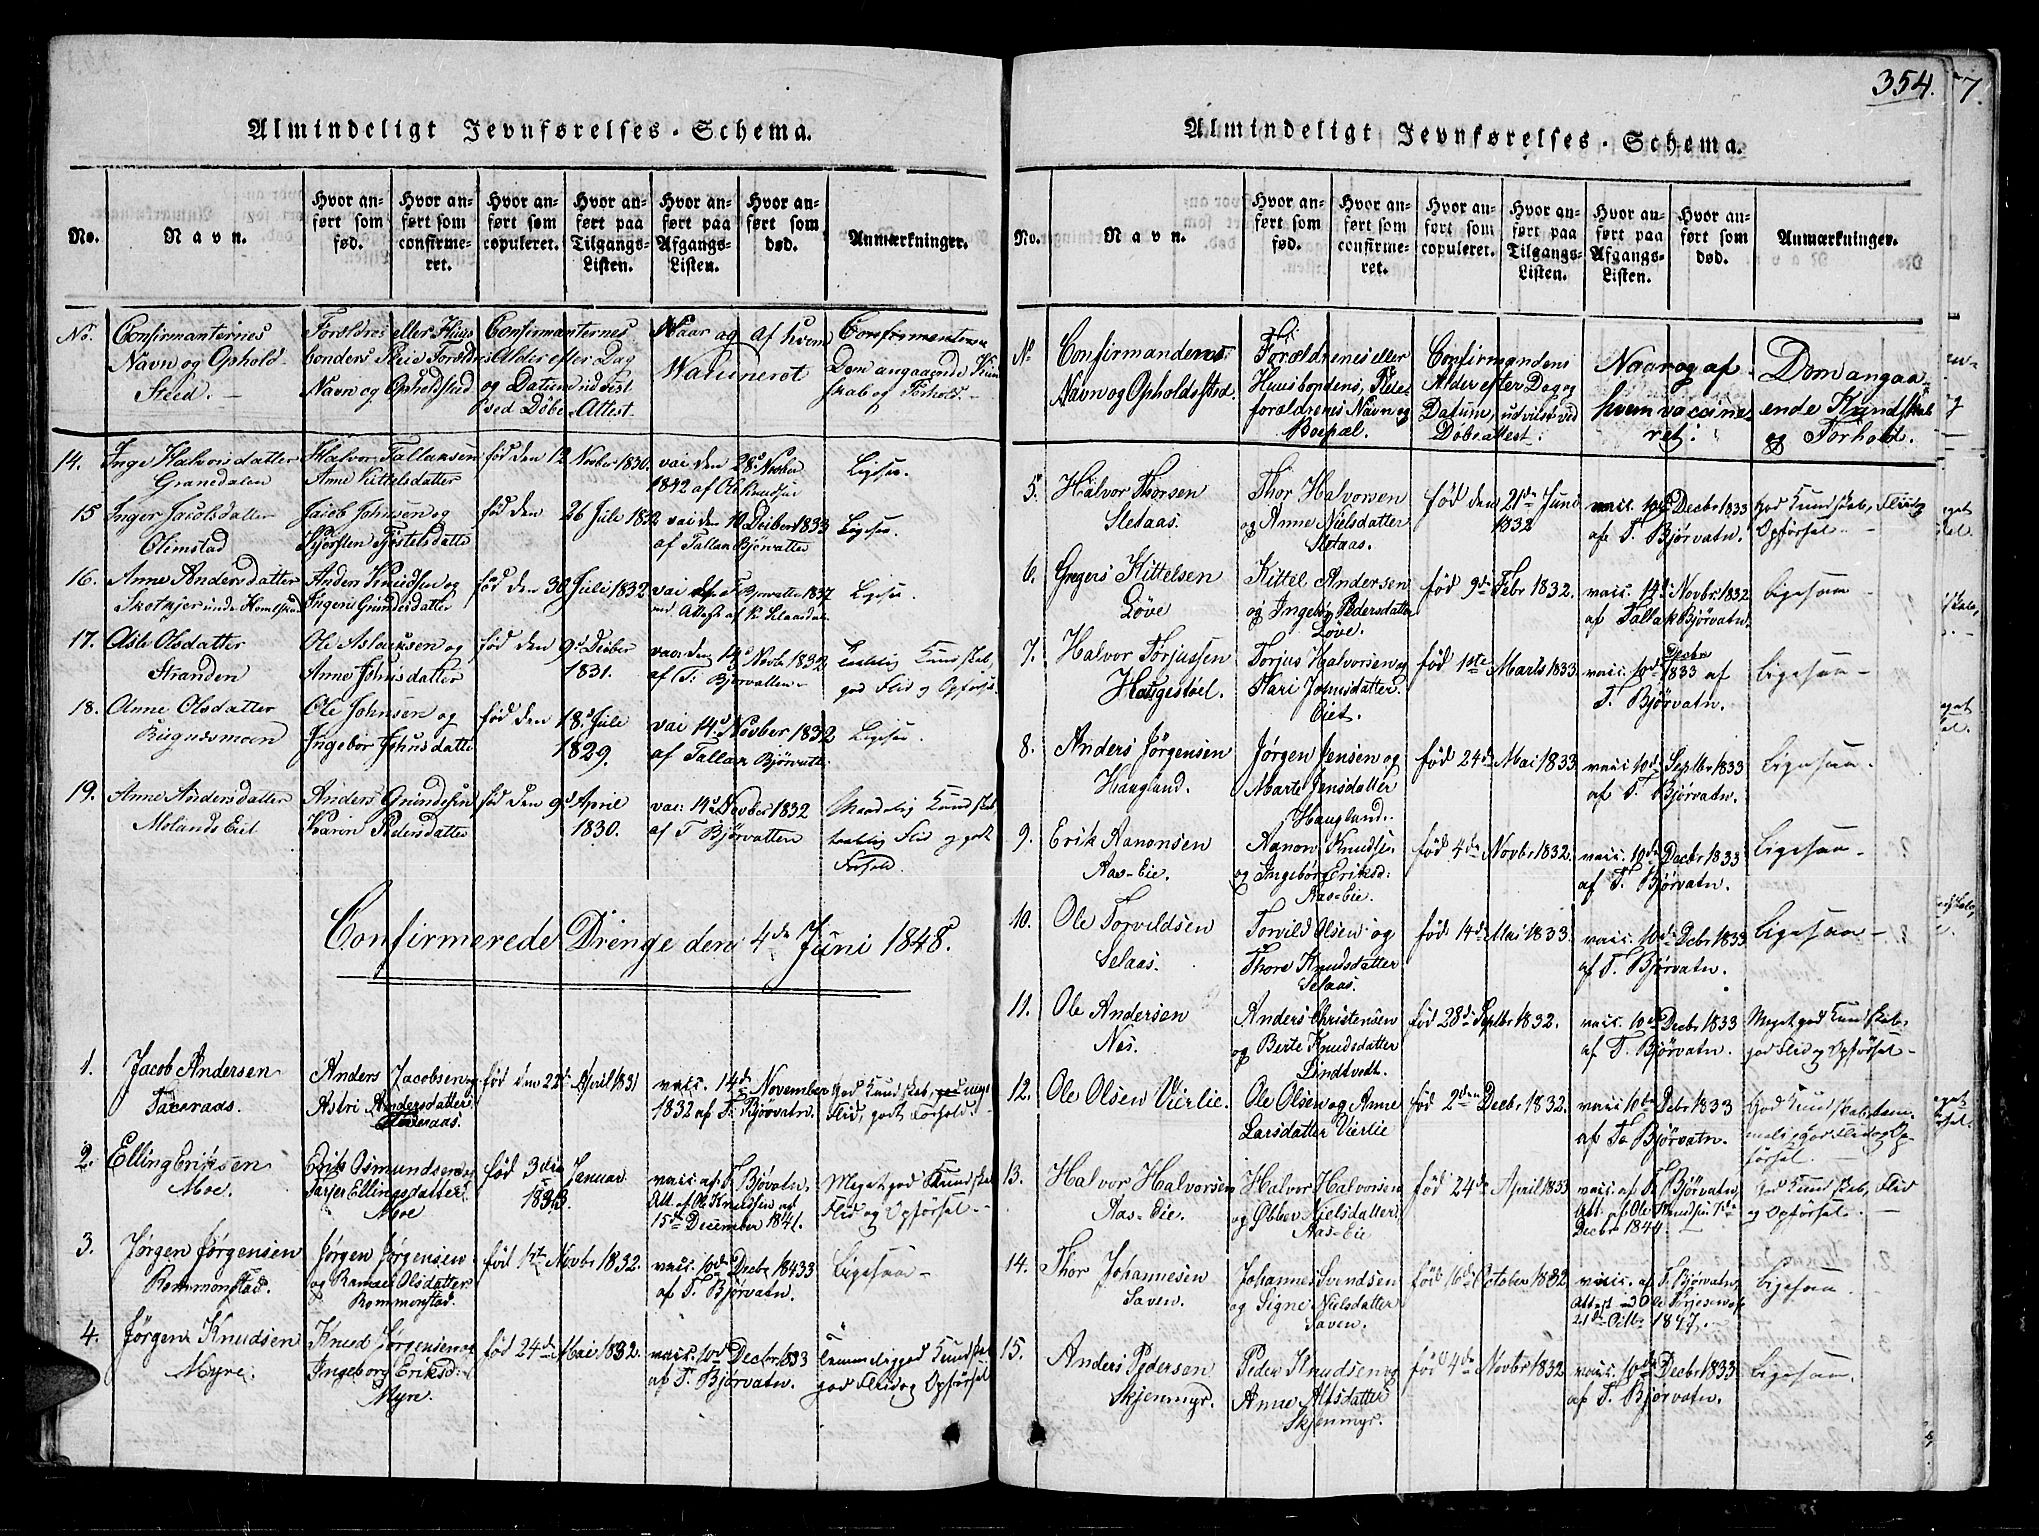 354.
7.
Almindeligt Jevnførelses-Schema.
No.
Navn.
Hvor anført som fød.
Hvor anført som confirmeret.
Hvor anført som copuleret.
Hvor anført paa Tilgangs-Listen.
Hvor anført paa Afgangs-Listen.
Hvor anført som død.
Anmærkninger.
No. Confirmanternes Navn og Ophold Sted.
Forældres eller Huusbonders Navn og Opholdsted
Confirmanternes Alder efter Dag og Datum udvist ved Døbe-Attest.
Naar og af hvem Vaccineret
Dom angaaende Kundskab og Forhold.
14. Inge Halvorsdatter Granedalen
Halvor Tallaksen Anne Kittelsdatter
fød den 12 Novber 1830.
vac den 28d Novber 1842 af Ole Knudsen
Ligesaa.
15 Inger Jacobsdatter Olimstad
Jacob Johnsen og
fød den 26 Juli 1832
vac den 10 Decber 1833 af Tallak Bjørvatten
Ligesaa.
16. Anne Andersdatter
Anders Knudsen og Ingeri Gundersdatter
fød den 30 Juli 1832
Ligesaa
17. Aste Olsdatter Stranden
Ole Aslaksen og Anne Johnsdatter
fød den 9d Decber 1831.
vac. den 14d Novbr 1832 af T. Bjørvatten
Taalelig Kundskab, god Flid og Opførsel.
18. Anne Olsdatter
Ole Johnsen og Ingebor Johnsdatter
fød den 18d Juli 1829.
vac 14d Novber 1832 af Tallak Bjørvatten
Ligesaa.
19. Anne Andersdatter Molands Eie
Anders Gundersen Karen Pedersdatter
fød den 9d April 1830.
vac: 14d Novber 1832 af T Bjørvatten
Maadelig Kundskab, taalelig Flid og godt Forhold.
Confirmerede Drenge den 4de Juni 1848.
1. Jacob Andersen
Anders Jacobsen og Astri Andersdatter
fød den 22de April 1831
vacc. 14de November 1832 af T. Bjørvatn.
God Kundskab, Flid, godt Forhold.
2. Elling Eriksen Moe.
Erik Osmundsen og Tarjer Ellingsdatter Moe
fød 3die Januar 1833.
vacc. af T. Bjøvatn. Att. af Ole Knudsen af 15de December 1841.
Meget god Kundskab Flid og Opførsel.
3. Jørgen Jørgensen Rommenstad.
Jørgen Jørgensen og Olsdatter Rommenstad.
fød 1ste Novbr 1832.
vacc. 10de Decbr 1833 af T. Bjørvatn.
Ligesaa
4. Jørgen Knudsen Myre.
Knud Jørgensen og Ingeborg Eriksd: Myre.
fød 24de Mai 1832.
vacc. 10de Decbr 1833 af T. Bjørvatn.
god Kundskab god Flid og Opførsel
Almindeligt Jevnførelses-Schema.
No.
Navn.
Hvor anført som fød.
Hvor anført som confirmeret.
Hvor anført som copuleret.
Hvor anført paa Tilgangs-Listen.
Hvor anført paa Afgangs-Listen.
Hvor anført som død.
Anmærkninger.
No Confirmandens Navn og Opholdssted.
Forældrenes eller Huusbondens, Pleieforældrenes Navn og Boepæl.
Confirmandens Alder efter Dag og Datum, udvist ved Døbeattest:
Naar og af hvem vaccineret:
Dom angaaende Kundskab og Forhold.
5. Halvor Thorsen Sletaas.
Thor Halvorsen og Anne Nielsdatter Sletaas.
fød den 21de Juni 1832
vacc. 10de Decbr 1833 af T. Bjørvatn.
God Kundskab, Flid og Opførsel.
6. Gregers Kittelsen Løve
Kittel Andersen og Ingeborg Pedersdatter Løve.
fød 9de Febr 1832.
vacc. 14de Novbr 1832 af Tallak Bjørvatn.
Ligesaa
7. Halvor Torjussen Haugestøel.
Torjus Halvorsen og Kari Johnsdatter. Eiet.
fød 1ste Marts 1833.
vacc. 10de Decbr 1833 af T. Bjørvatn.
Ligesaa
8. Anders Jørgensen Haugland.
Jørgen Jensen og Marte Jensdatter Haugland.
fød 24de Mai 1833
vacc 10de Septbr 1833 af T. Bjørvatn.
Ligesaa.
9. Erik Aanonsen Aas-Eie.
Aanon Knudsen og Ingeborg Eriksd: Aas-Eie.
fød 4de Novbr 1832.
vacc. 10de Decbr 1833 af T. Bjørvatn.
Ligesaa
10. Ole Torvildsen Selaas.
Torvild Olsen og Thore Knudsdatter Selaas.
fød 14de Mai 1833.
vacc. 10de Debr 1833 af T. Bjørvatn.
Ligesaa
11. Ole Andersen Nes.
Anders Christensen og Berte Knudsdatter Lindtvedt.
fød 28de Septbr 1832.
vacc. 10de Decbr 1833 af T. Bjørvatn.
Meget god Kundskab, god Flid og Opførsel
12. Ole Olsen Vierlie.
Ole Olsen og Anne Larsdatter Vierlie
fød 2den Decbr 1832.
vacc. 10de Debr 1833 af Ta Bjørvatn.
God Kundskab, god Flid og Opførsel.
13. Halvor Halvorsen Aas-Eie.
Halvor Halvorsen og Nielsdatter, Aas-Eie
fød 24de April 1833
vacc. af T. Bjørvatn, Att. af Ole Knudsen Decbr 1844.
God Kundskab, Flid og Opførsel.
14. Thor Johannesen Saven.
Johannes Svendsen og Signe Nielsdatter Saven.
fød 16de October 1832
vacc. af T. Bjørvatn,
Ligesaa.
15. Anders Pedersen Skjenmyr.
Peder Knudsen og Anne Alfsdatter Skjenmyr.
fød 4de Novbr 1832
vacc. 10de Decbr 1833 af T. Bjørvatn.
Ligesaa.